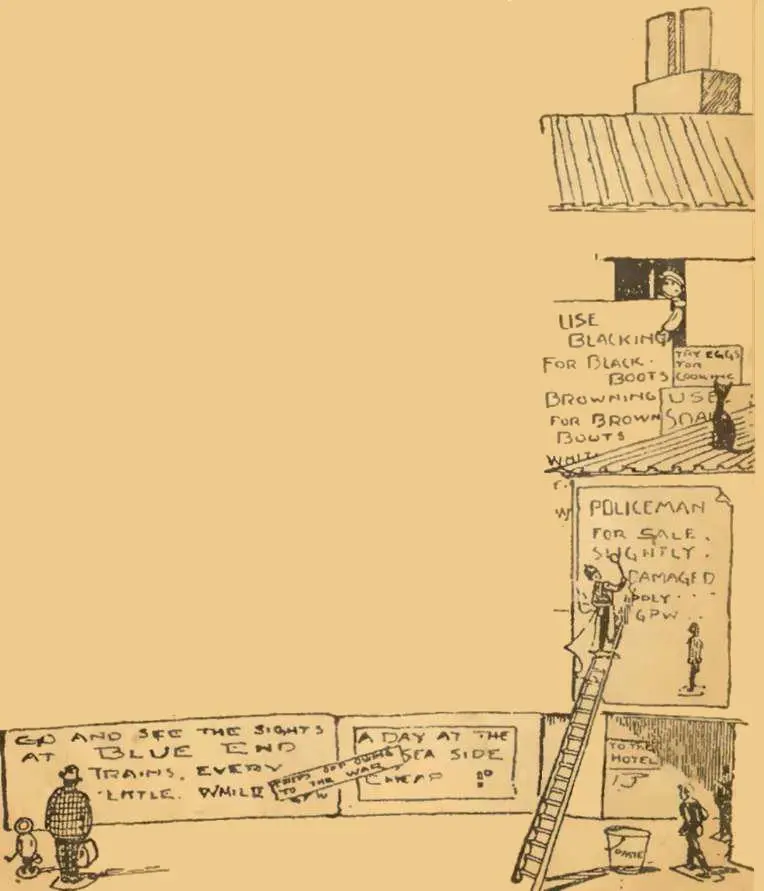 USE
BLACKING
FOR BLACK.
BOOTS
BROWNING
FOR BROWN
BOOTS
WHIT
TRY EGGS
FOR
COOKING
USE
SOAP
POLICEMAN
FOR SALE.
SLIGHTLY.
DAMAGED
APPLY
GPW
GO AND SEE THE SIGHTS
AT BLUE END
TRAINS. EVERY
LITTLE. WHILE
TO THE WAR
GPW
A DAY AT THE
SEA SIDE
CHEAP
TO THE
HOTEL
PASTE